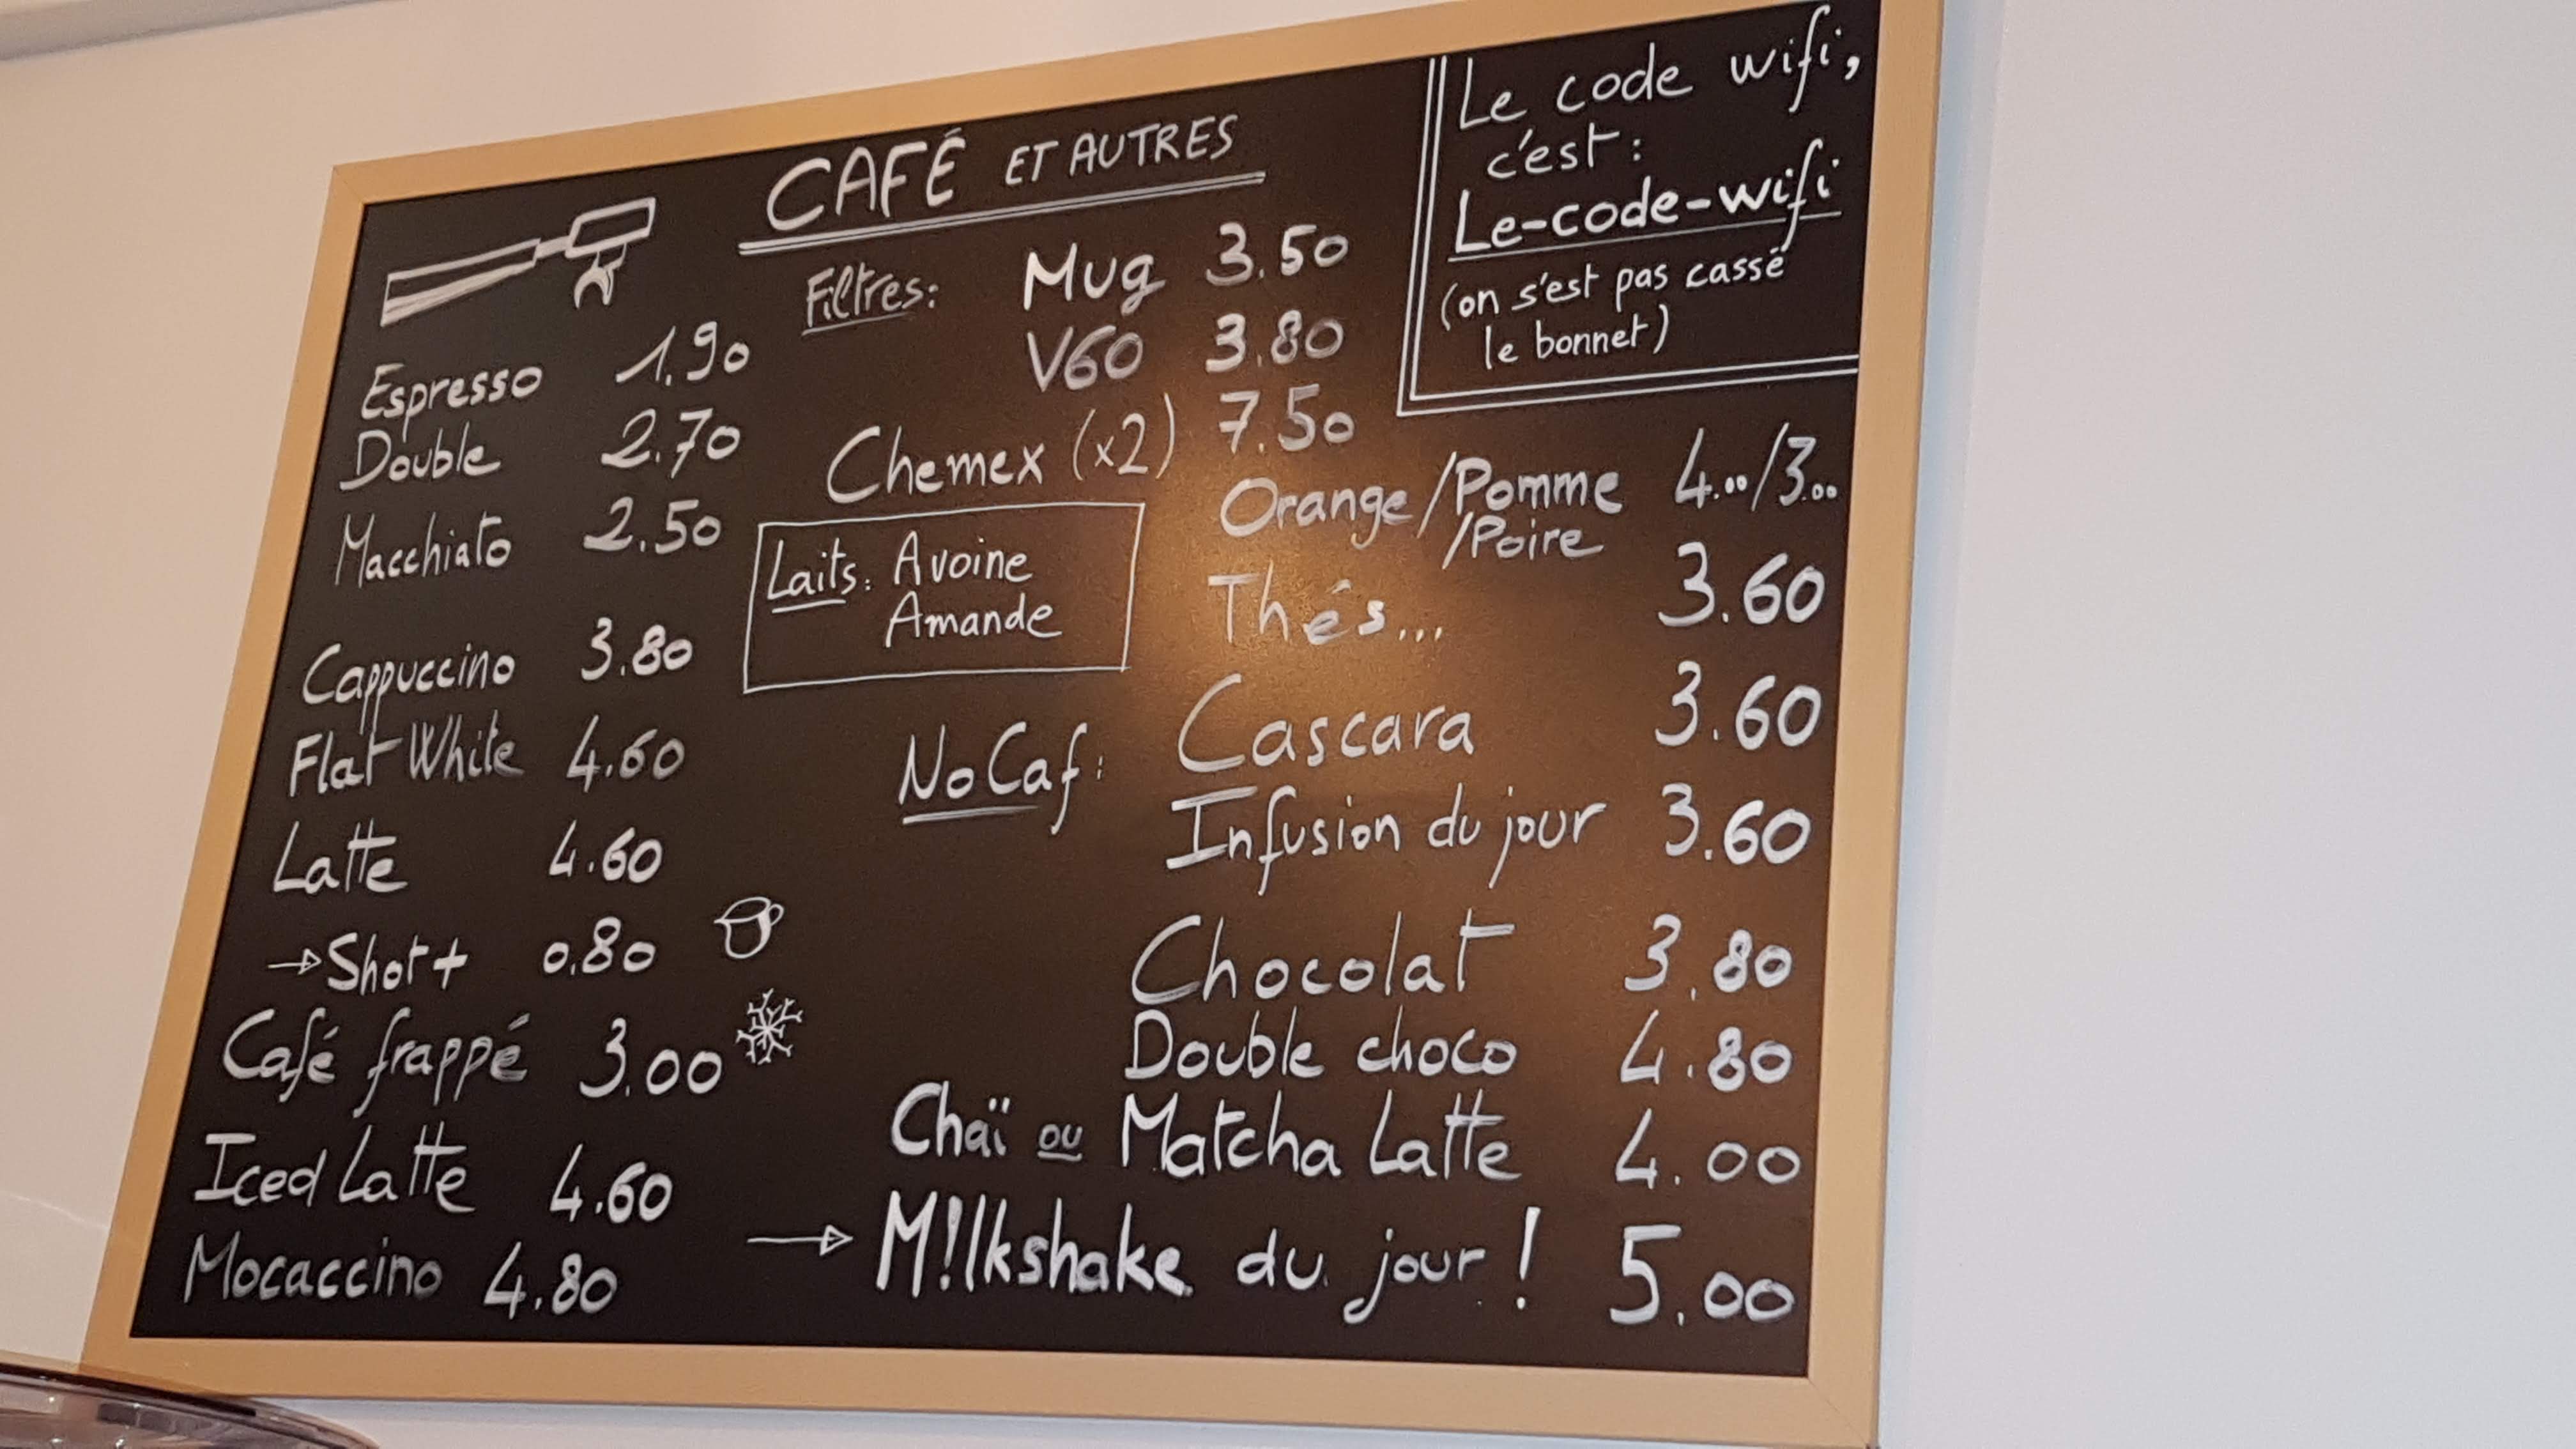 CAFÉ ET AUTRES
Espresso 1.90
Double 2.70
Macchiato 2.50
Cappuccino 3.80
Flat White 4.60
Latte 4.60
→Shot+ 0.80
Café frappé 3.00
Iced Latte 4.60
Mocaccino 4.80
Filtres: Mug 3.50
V60 3.80
Chemex (x2) 7.50
Laits: Avoine
Amande
Le code wifi,
c'est:
Le-code-wifi
(on s'est pas cassé
le bonnet)
Orange/Pomme 4.00/3.00
/Poire
Thés... 3.60
NoCaf: Cascara 3.60
Infusion du jour 3.60
Chocolat 3.80
Double choco 4.80
Chaï ou Matcha Latte 4.00
→ M!lkshake du jour! 5.00